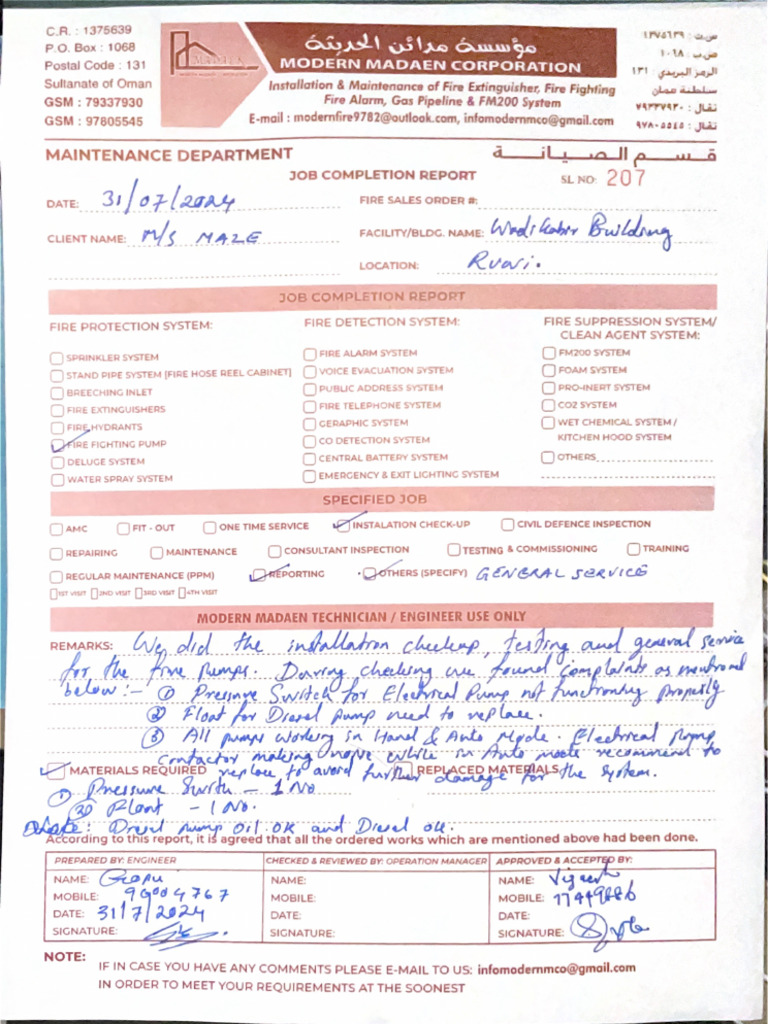 C.R. : 1375639
P.O. Box : 1068
Postal Code : 131
Sultanate of Oman
GSM : 79337930
GSM : 97805545
MADAEN
مؤسسة مدائن الحديثة
MODERN MADAEN CORPORATION
Installation & Maintenance of Fire Extinguisher, Fire Fighting
Fire Alarm, Gas Pipeline & FM200 System
E-mail : modernfire9782@outlook.com, infomodernmco@gmail.com
س.ت : ١٣٧٥٦٣٩
ص.ب : ١٠٦٨
الرمز البريدي : ١٣١
سلطنة عمان
نقال : ٧٩٣٣٧٩٣٠
نقال : ٩٧٨٠٥٥٤٥
MAINTENANCE DEPARTMENT
قسم الصيانة
JOB COMPLETION REPORT
SL NO: 207
DATE: 31/07/2024
FIRE SALES ORDER #:
CLIENT NAME: M/S MAZE
FACILITY/BLDG. NAME: Wadikabir Building
LOCATION: Ruwi.
JOB COMPLETION REPORT
FIRE PROTECTION SYSTEM:
SPRINKLER SYSTEM
STAND PIPE SYSTEM [FIRE HOSE REEL CABINET]
BREECHING INLET
FIRE EXTINGUISHERS
FIRE HYDRANTS
FIRE FIGHTING PUMP
DELUGE SYSTEM
WATER SPRAY SYSTEM
FIRE DETECTION SYSTEM:
FIRE ALARM SYSTEM
VOICE EVACUATION SYSTEM
PUBLIC ADDRESS SYSTEM
FIRE TELEPHONE SYSTEM
GERAPHIC SYSTEM
CO DETECTION SYSTEM
CENTRAL BATTERY SYSTEM
EMERGENCY & EXIT LIGHTING SYSTEM
FIRE SUPPRESSION SYSTEM/
CLEAN AGENT SYSTEM:
FM200 SYSTEM
FOAM SYSTEM
PRO-INERT SYSTEM
CO2 SYSTEM
WET CHEMICAL SYSTEM /
KITCHEN HOOD SYSTEM
OTHERS
SPECIFIED JOB
AMC FIT - OUT ONE TIME SERVICE INSTALATION CHECK-UP CIVIL DEFENCE INSPECTION
REPAIRING MAINTENANCE CONSULTANT INSPECTION TESTING & COMMISSIONING TRAINING
REGULAR MAINTENANCE (PPM) REPORTING OTHERS (SPECIFY) GENERAL SERVICE
1ST VISIT 2ND VISIT 3RD VISIT 4TH VISIT
MODERN MADAEN TECHNICIAN / ENGINEER USE ONLY
REMARKS: We did the installation checkup, testing and general service
for the fire pumps. During checking we found Complaints as mentioned
below :- ① Pressure Switch for Electrical Pump not functioning properly
② Float for Diesel pump need to replace.
③ All pumps working in Hand & Auto Mode. Electrical pump
contactor making noise while in Auto mode recommend to
replace to avoid further damage for the system.
MATERIALS REQUIRED
REPLACED MATERIALS
① Pressure Swith - 1 No
② Float - 1 No.
: Diesel pump Oil OK and Diesel ok.
According to this report, it is agreed that all the ordered works which are mentioned above had been done.
PREPARED BY: ENGINEER
NAME:
MOBILE: 99004767
DATE: 31/7/2024
SIGNATURE:
CHECKED & REVIEWED BY: OPERATION MANAGER
NAME:
MOBILE:
DATE:
SIGNATURE:
APPROVED & ACCEPTED BY:
NAME: Vijeesh
MOBILE:
DATE:
SIGNATURE:
NOTE:
IF IN CASE YOU HAVE ANY COMMENTS PLEASE E-MAIL TO US: infomodernmco@gmail.com
IN ORDER TO MEET YOUR REQUIREMENTS AT THE SOONEST